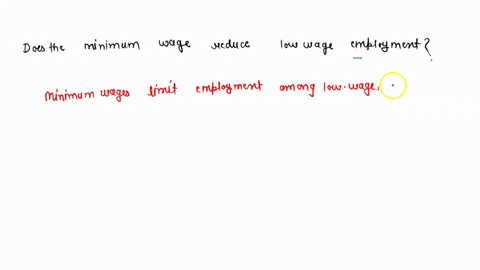 Does the minimum wage reduce low wage employment?
Minimum wages limit employment among low-wage,